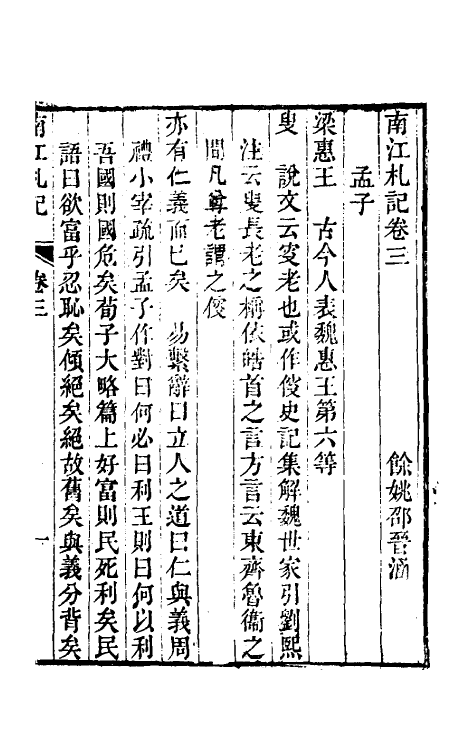 南江札記卷三　　　　　　餘姚邵晉涵
孟子
梁惠王　古今人表魏惠王第六等
叟　說文云叜老也或作傁史記集解魏世家引劉熙
注云叟長老之稱依皓首之言方言云東齊魯衞之
間凡尊老謂之傁
亦有仁義而已矣　易繫辭曰立人之道曰仁與義周
禮小宰疏引孟子作對曰何必曰利王則曰何以利
吾國則國危矣荀子大略篇上好富則民死利矣民
語曰欲富乎忍恥矣傾絕矣絕故舊矣與義分背矣
南江札記　卷三　一